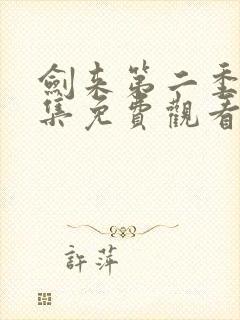 劍来第二季
集免費觀看
許萍